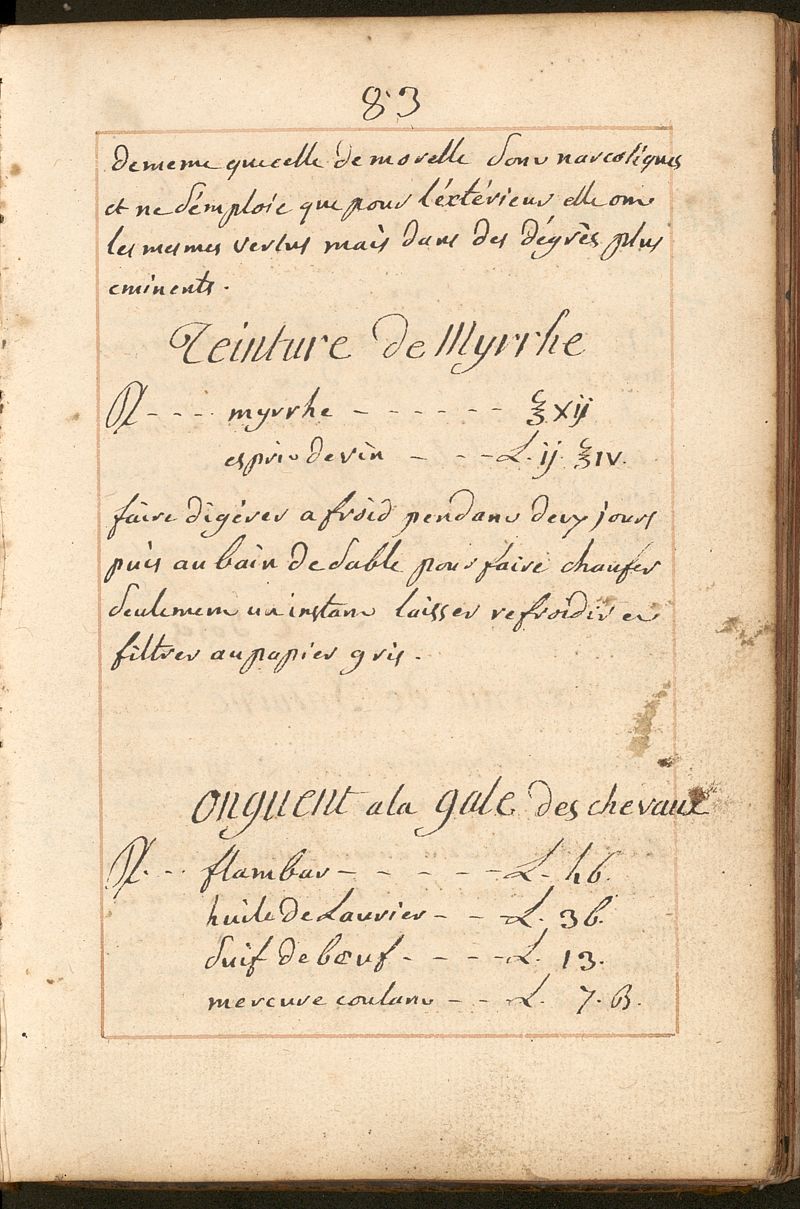 83
de meme que celle de morelle sont narcotiques
et ne s'emploie que pour l'éxtérieur elle ont
les mesmes vertus mais dans des dégrès plus
eminents.
Teinture de Myrrhe
℞ - - - - myrrhe - - - - - - ℥ xij
esprit de vin - - - L. ij. ℥ iv.
faire digérer a froid pendant deux jours
puis au bain de sable pour faire chaufer
seulement un instant laisser refroidir et
filtrer au papier gris.
onguent a la gale des chevaux
℞. - - flambar - - - - - - L.
huile de Laurier - - - L. 36.
suif de bœuf - - - - L. 13.
mercure coulant - - - L. 7. ß.